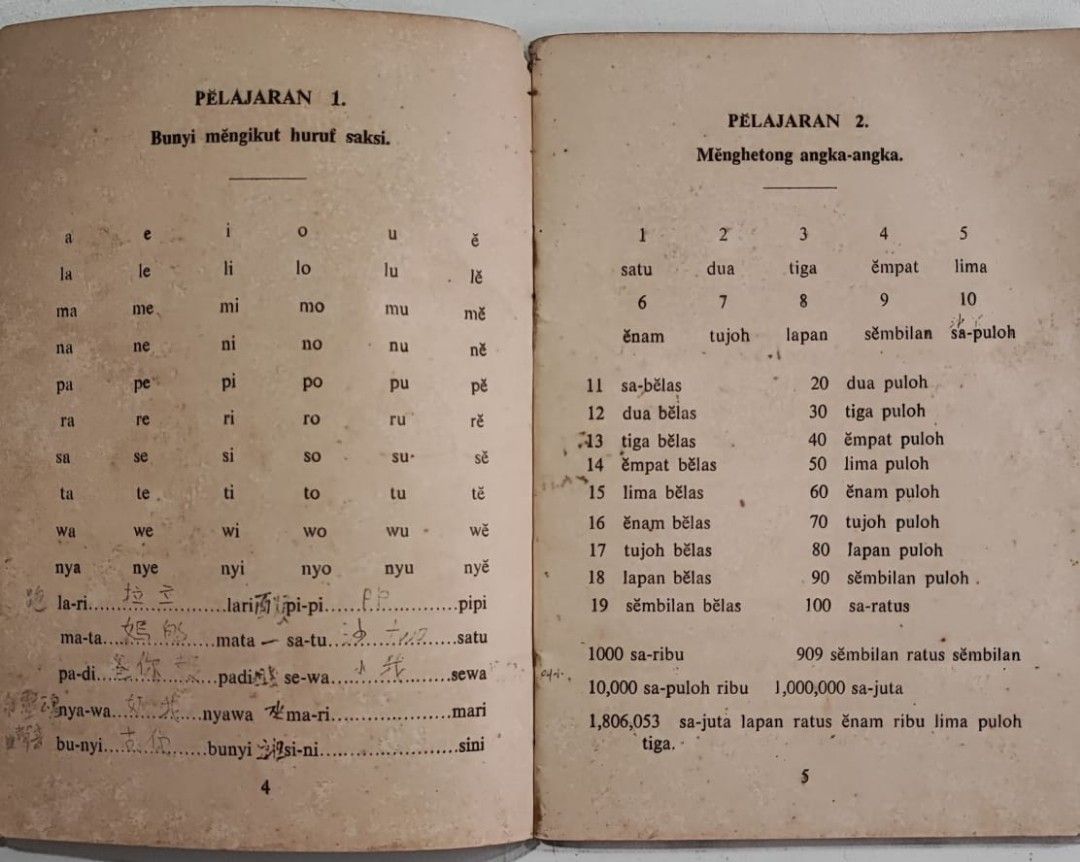 PĔLAJARAN 1.
Bunyi mĕngikut huruf saksi.
a e i o u ĕ
la le li lo lu lĕ
ma me mi mo mu mĕ
na ne ni no nu nĕ
pa pe pi po pu pĕ
ra re ri ro ru rĕ
sa se si so su sĕ
ta te ti to tu tĕ
wa we wi wo wu wĕ
nya nye nyi nyo nyu nyĕ
跑 la-ri 拉立 lari pi-pi pipi
ma-ta 媽 mata 一 sa-tu satu
pa-di 你 padi se-wa 我 sewa
靈魂 nya-wa 我 nyawa ma-ri mari
聲音 bu-nyi bunyi si-ni sini
4
PĔLAJARAN 2.
Mĕnghetong angka-angka.
1 2 3 4 5
satu dua tiga ĕmpat lima
6 7 8 9 10
ĕnam tujoh lapan sĕmbilan sa-puloh
11 sa-bĕlas 20 dua puloh
12 dua bĕlas 30 tiga puloh
13 tiga bĕlas 40 ĕmpat puloh
14 ĕmpat bĕlas 50 lima puloh
15 lima bĕlas 60 ĕnam puloh
16 ĕnam bĕlas 70 tujoh puloh
17 tujoh bĕlas 80 lapan puloh
18 lapan bĕlas 90 sĕmbilan puloh .
19 sĕmbilan bĕlas 100 sa-ratus
1000 sa-ribu 909 sĕmbilan ratus sĕmbilan
10,000 sa-puloh ribu 1,000,000 sa-juta
1,806,053 sa-juta lapan ratus ĕnam ribu lima puloh
tiga.
5